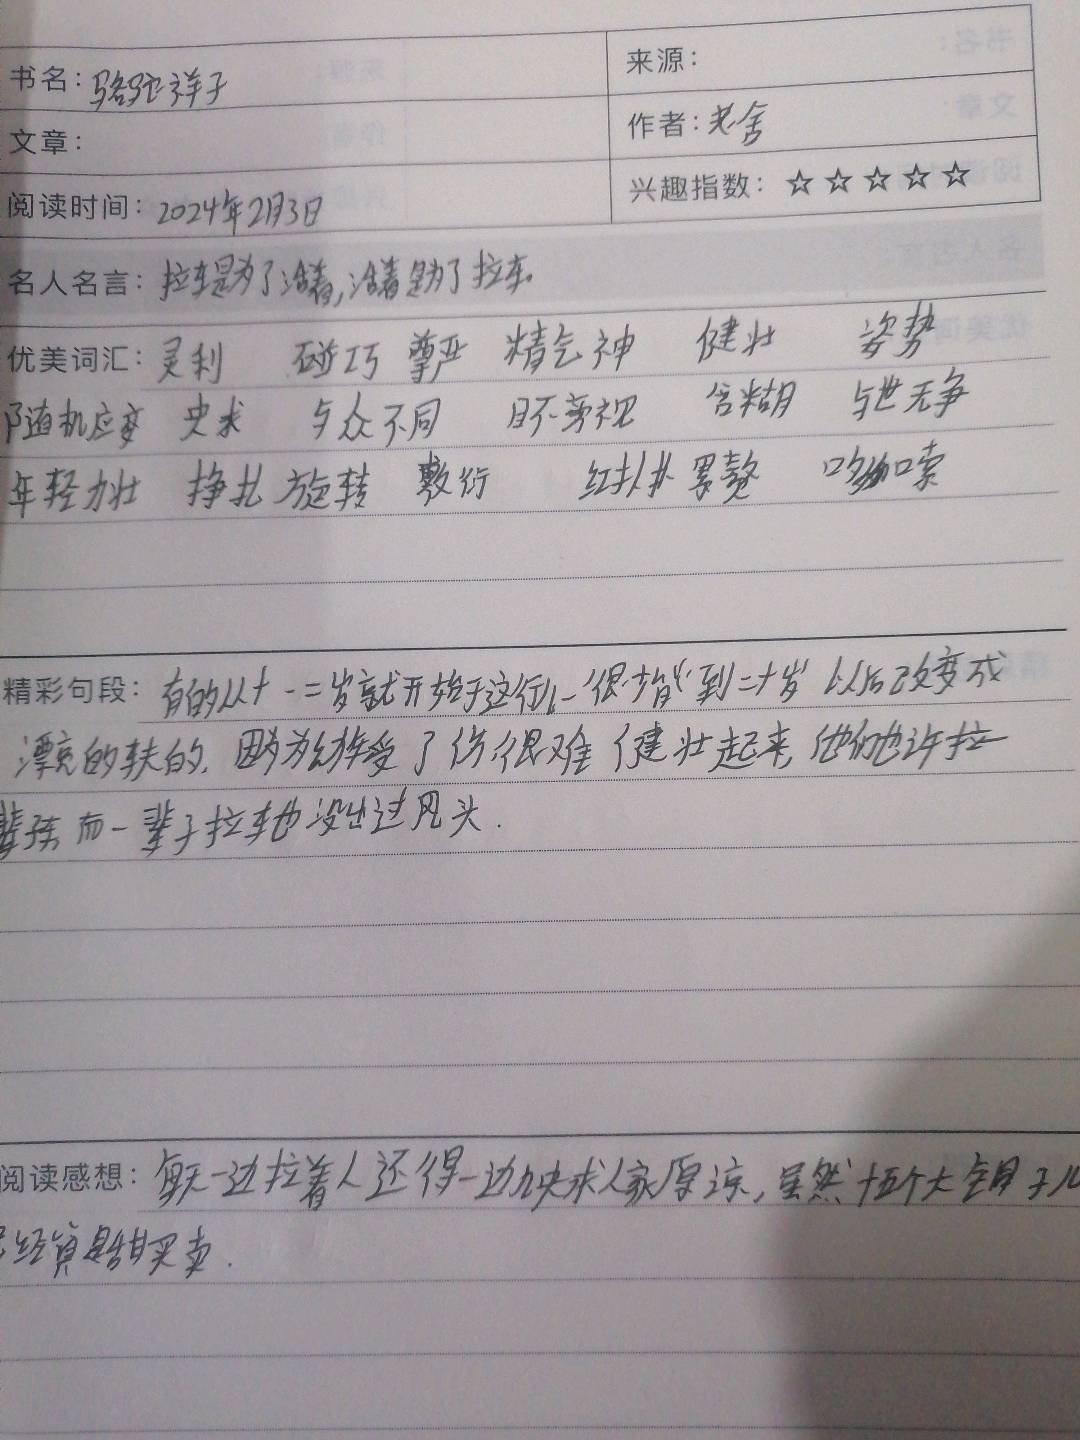 书名：骆驼祥子
来源：
文章：
作者：老舍
阅读时间：2024年2月3日
兴趣指数：☆☆☆☆☆
名人名言：拉车是为了活着，活着是为了拉车。
优美词汇：灵利 碰巧 尊严 精气神 健壮 姿势
随机应变 央求 与众不同 目不旁视 含糊 与世无争
年轻力壮 挣扎 旋转 敷衍 红扑扑 累赘 哆嗦
精彩句段：有的从十一二岁就开始干这行儿，很少能到二十岁以后改变成
漂亮的车夫的，因为幼年受了伤很难健壮起来，他们也许拉
辈子 而一辈子拉车也没出过风头.
阅读感想：每天一边拉着人还得一边央求人家原谅，虽然十五个大铜子儿
已经算是甜买卖.